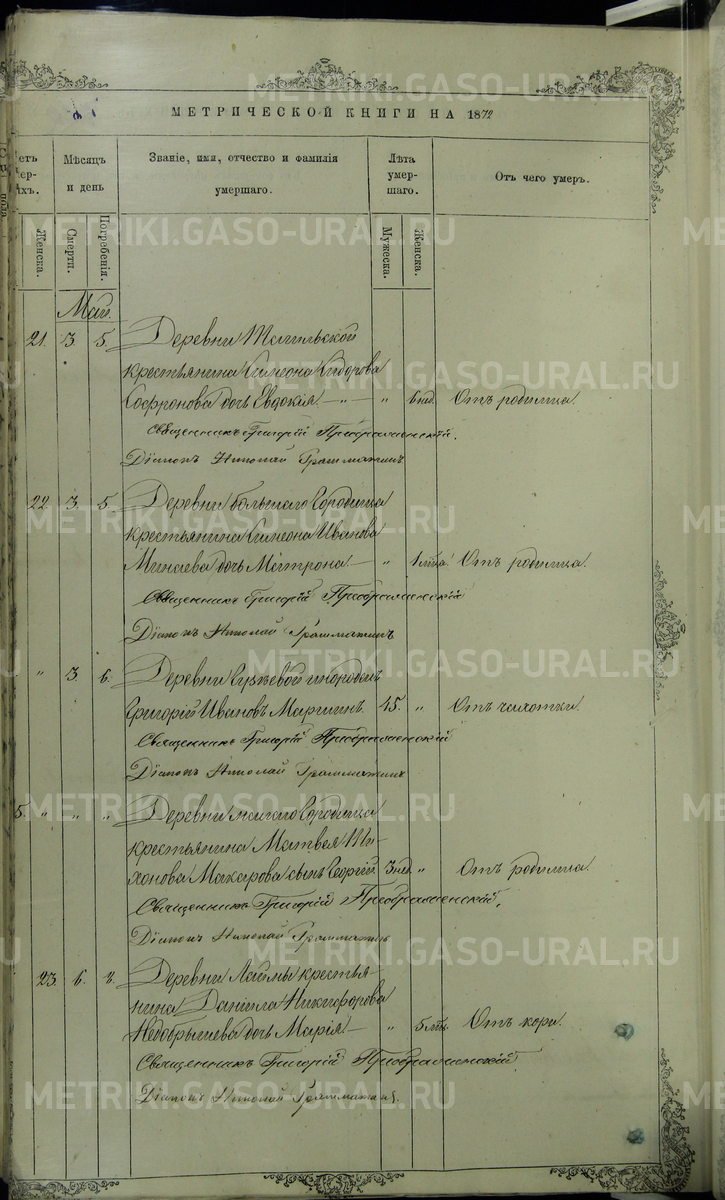 МЕТРИЧЕСКОЙ КНИГИ НА 1872
Мѣсяцъ и день
Званіе, имя, отчество и фамилія умершаго.
Лѣта умер-шаго.
Отъ чего умеръ.
Женска. Смерти. Погребенія. Мужеска. Женска.
Май.
21. 3 5. Деревни Тагильской
крестьянина Симеона Сидорова
Софронова дочь Евдокія. — „ — „ 6 нед. Отъ родимца
Священникъ Григорій Преображенскій.
Діаконъ Николай Грамматинъ
22 3. 5. Деревни большаго Городища
крестьянина Симеона Иванова
Минаева дочь Матрона. — „ 1 мѣсяца. Отъ родимца.
Священникъ Григорій Преображенскій
Діаконъ Николай Грамматинъ
„ 3. 6. Деревни
Григорій Ивановъ 45. „ Отъ чахотки.
Священникъ Григорій Преображенскій
Діаконъ Николай Грамматинъ
5. „ „ „ Деревни малаго Городища
крестьянина Матвея Ти-
хонова Макарова сынъ Георгій. 3 нед. „ Отъ родимца.
Священникъ Григорій Преображенскій.
Діаконъ Николай Грамматинъ
23. 6. 8. Деревни крестья-
нина Данила Никифорова
дочь Марія — „ 5 лѣтъ. Отъ кори.
Священникъ Григорій Преображенскій
Діаконъ Николай Грамматинъ.
METRIKI.GASO-URAL.RU